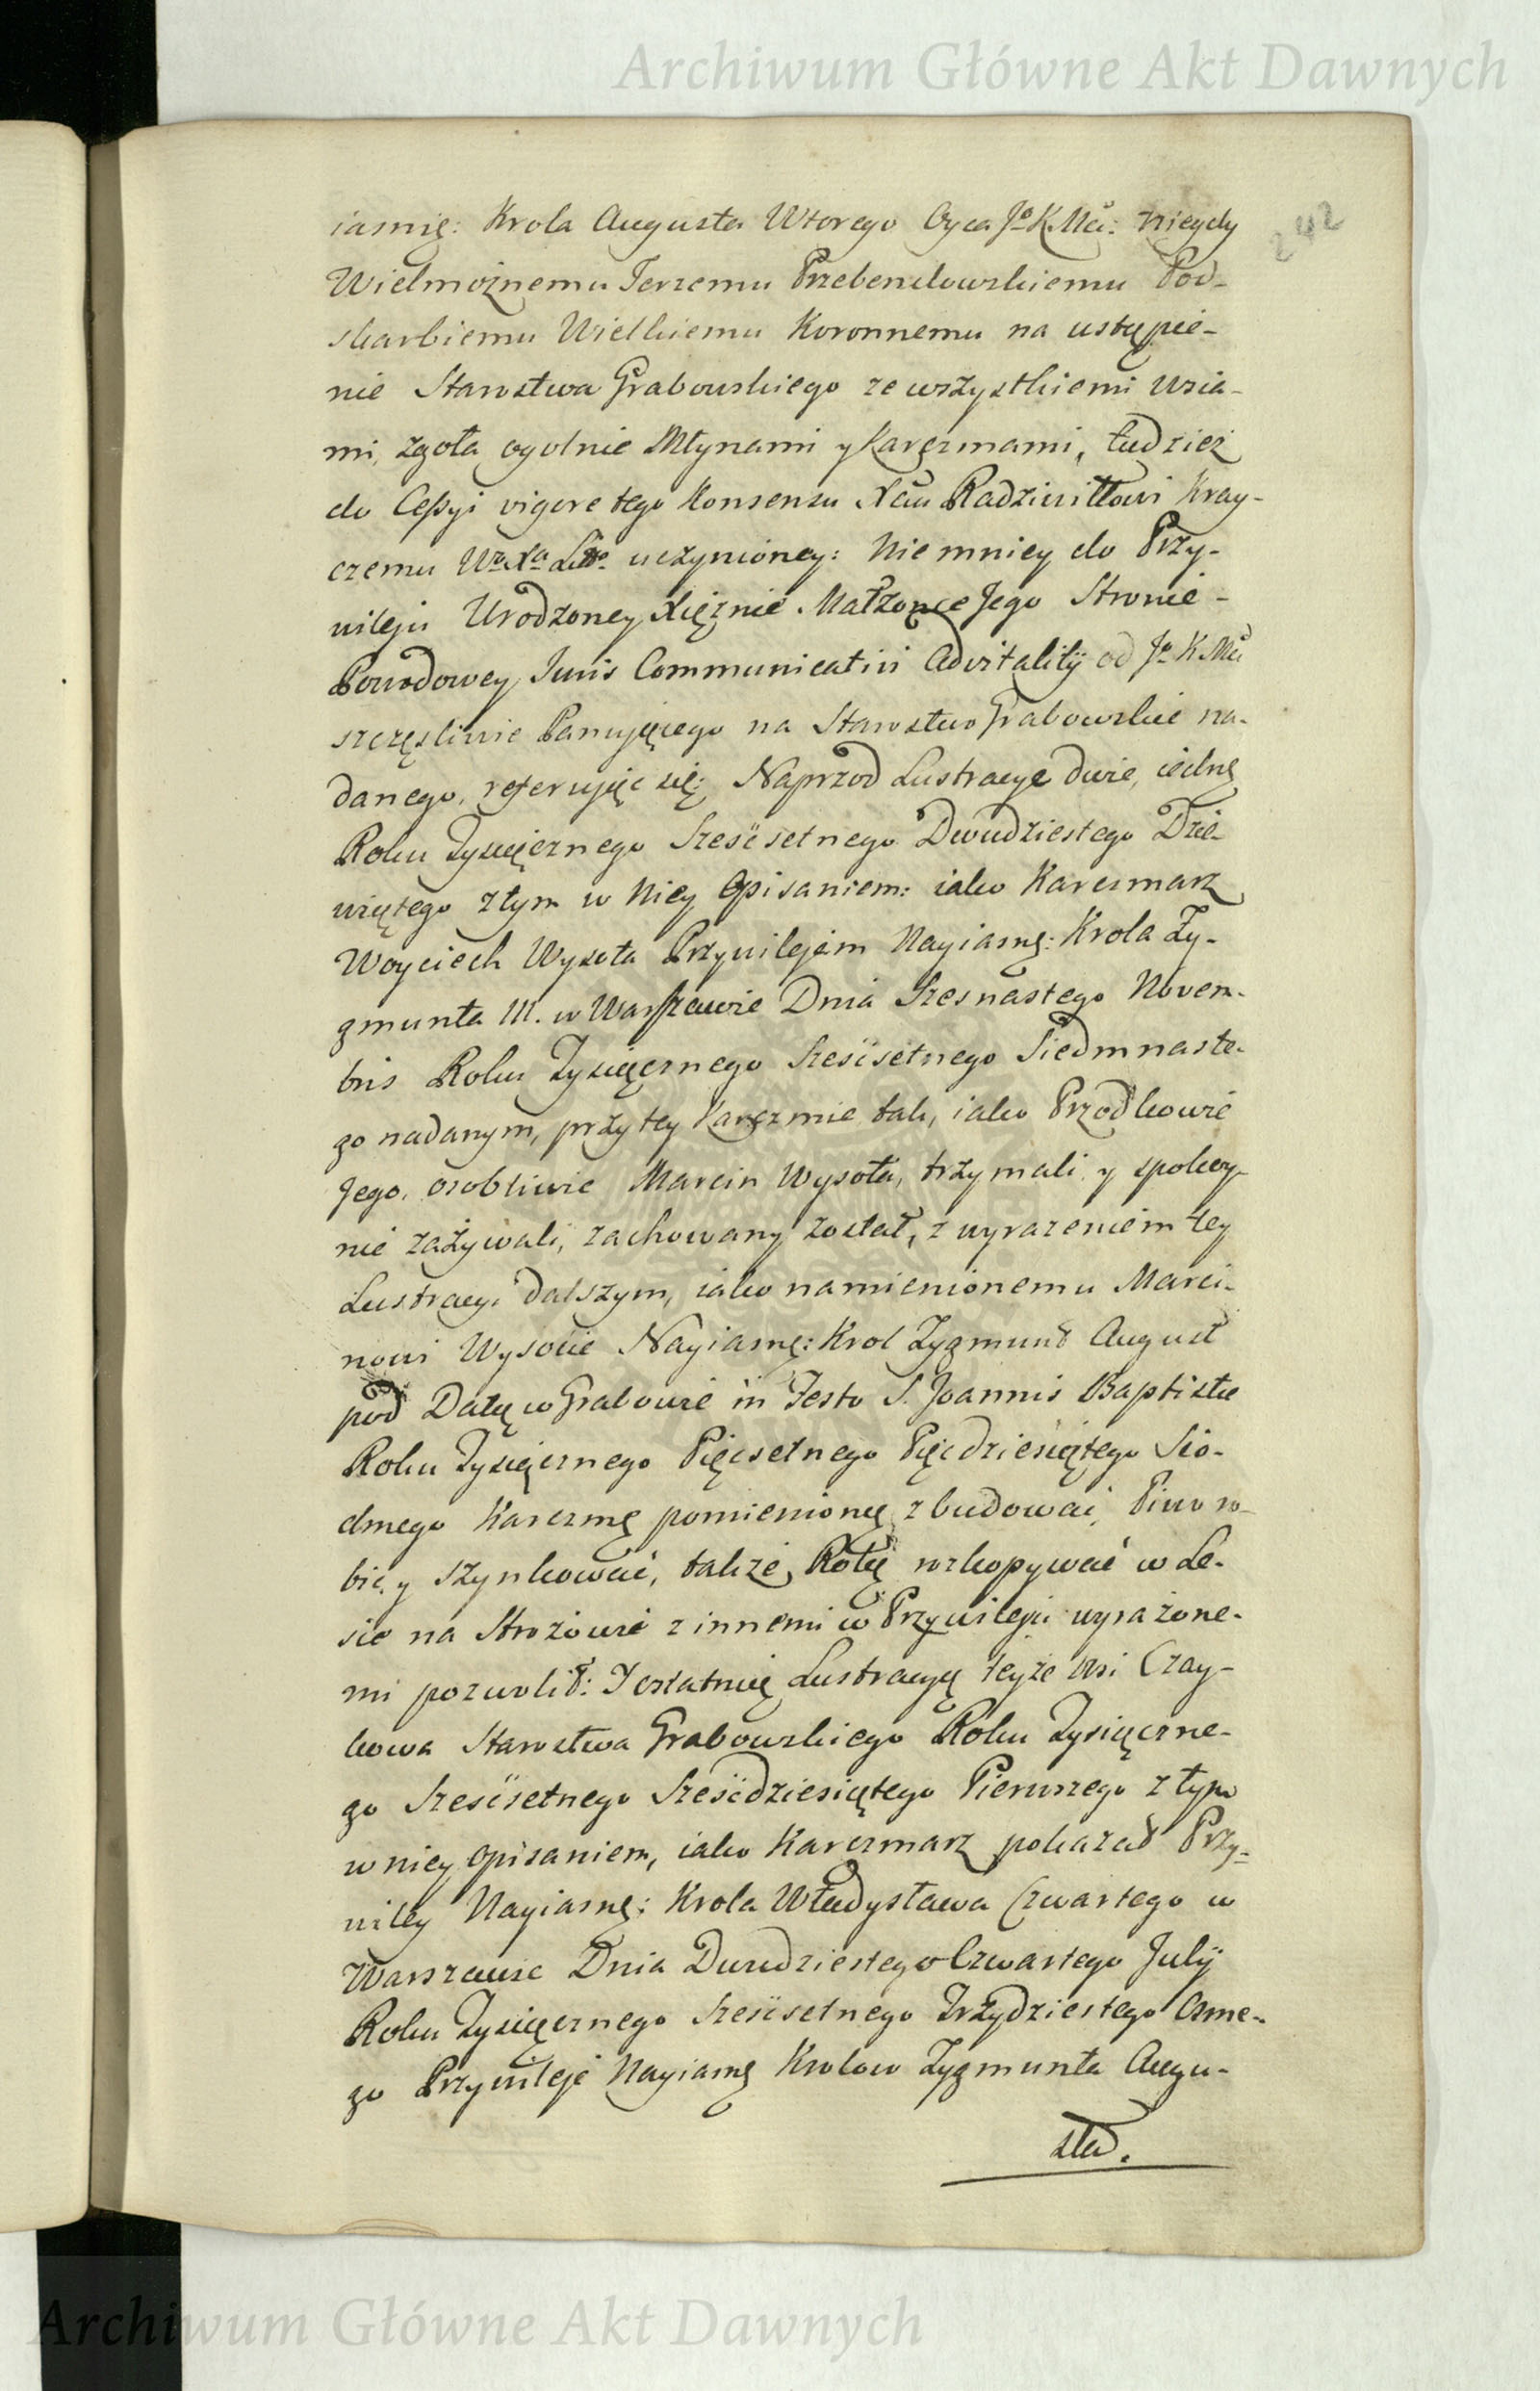 Archiwum Główne Akt Dawnych
242
iasnię: Krola Augusta Wtorego Oyca Jo K Mci: niegdy
Wielmożnemu Jerzemu Przebendowskiemu Pod-
skarbiemu Wielkiemu Koronnemu na ustąpie-
nie Starostwa Grabowskiego ze wszystkiemi Wsia-
mi, zgoła ogolnie Młynami y Karczmami, tudziez
do Cessyi vigore tego Konsensu Xciu Radziwiłłowi Kray-
czemu Wo Xa Litto uczynioney: niemniey do Przy-
wileju Urodzoney Xiężnie Małzonce Jego Stronie-
Powodowey Juris Communicativi Advitalitÿ od Jo K Mci
szczęsliwie Panującego na Starostwo Grabowskie na-
danego, referując się: Naprzod Lustracye dwie, iedną
Roku Tysiącznego Szescsetnego Dwudziestego Dzie-
wiątego z tym w niey Opisaniem: iako Karczmarz
Woyciech Wysota Przywilejem Nayiasnę: Krola Zy-
gmunta III. w Warszawie Dnia Szesnastego Novem-
bris Roku Tysiącznego Szescsetnego Siedmnaste-
go nadanym, przy tey Karczmie tak, iako Przodkowie
Jego, osobliwie Marcin Wysota, trzymali y spokoy-
nie zażywali, zachowany został, z wyrazeniem tey
Lustracyi dalszym, iako namienionemu Marci-
nowi Wysocie Nayiasnę: Krol Zygmunt August
pod Datą w Grabowie in Festo S. Joannis Baptistæ
Roku Tysiącznego Pięcsetnego Pięcdziesiątego Sio-
dmego Karczmę pomienioną zbudowac, Piwo ro-
bic, y szynkować, takze Rolą rozkopywać w Le-
sie na Strożowie z innemi w Przywileju wyrażone-
mi pozwolił: Y ostatnią Lustracyą teyże Wsi Czay-
kowa Starostwa Grabowskiego Roku Tysiączne-
go Szescsetnego Szescdziesiątego Pierwszego z tym
w niey opisaniem, iako Karczmarz pokazał Przy-
wiley Nayiasnę: Krola Władysława Czwartego w
Warszawie Dnia Dwudziestego Czwartego Julÿ
Roku Tysiącznego Szescsetnego Trzydziestego Osme-
go Przywileje Nayiasnę Krolow Zygmunta Augu-
sta.
Archiwum Główne Akt Dawnych